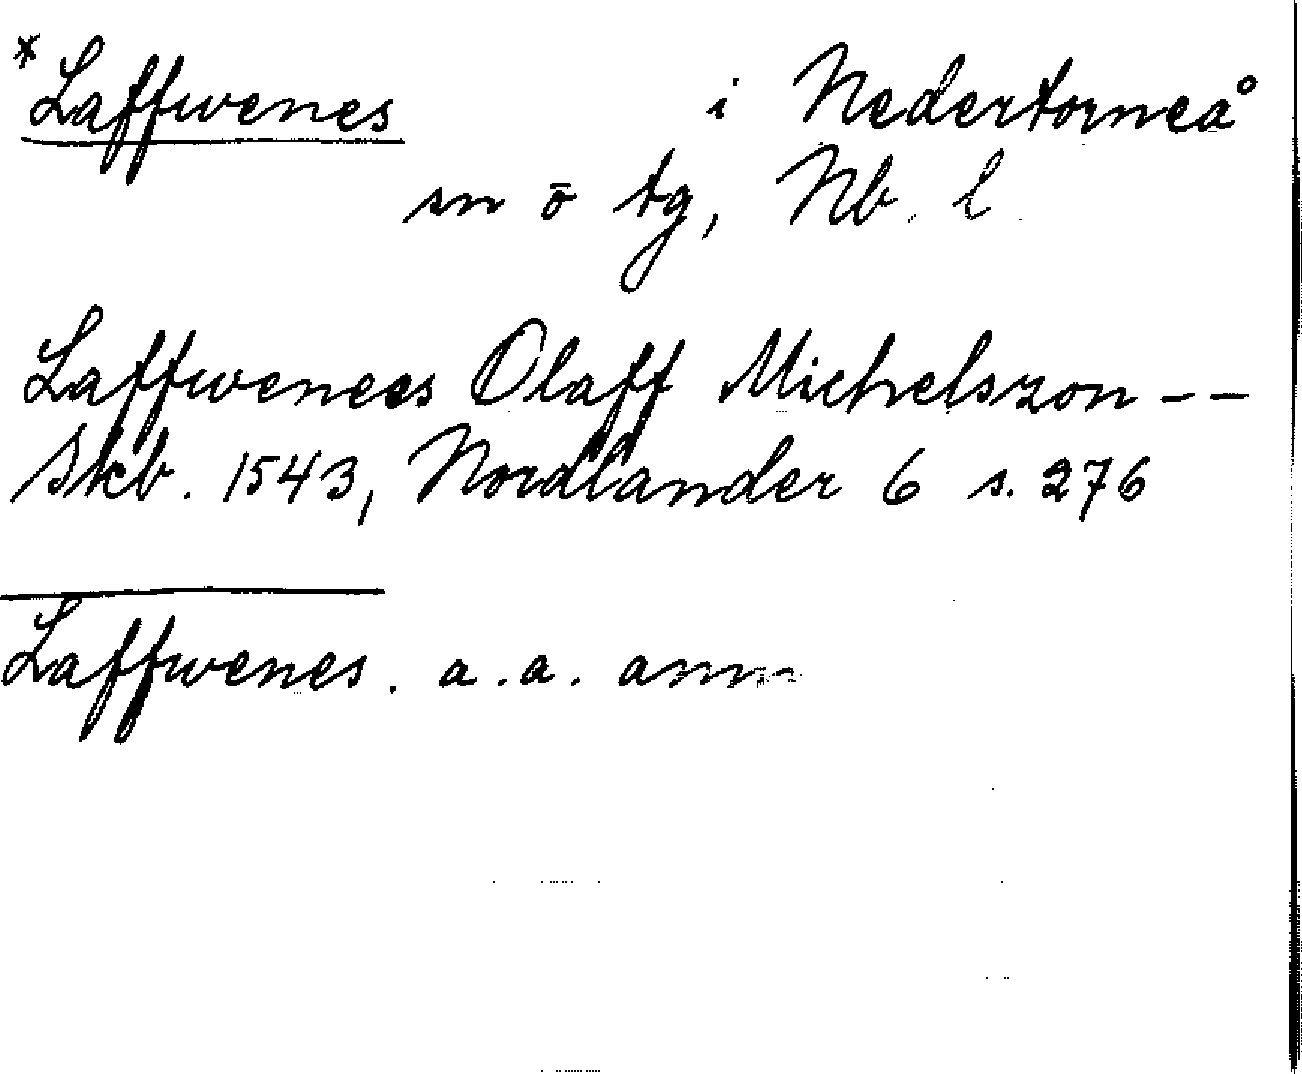 *Laffwenes i Nedertorneå
sn ö tg, Nb. l.
Laffwenees Olaff Michelszon --
Skb. 1543, Nordlander 6 s. 276
Laffwenes. a.a. anm